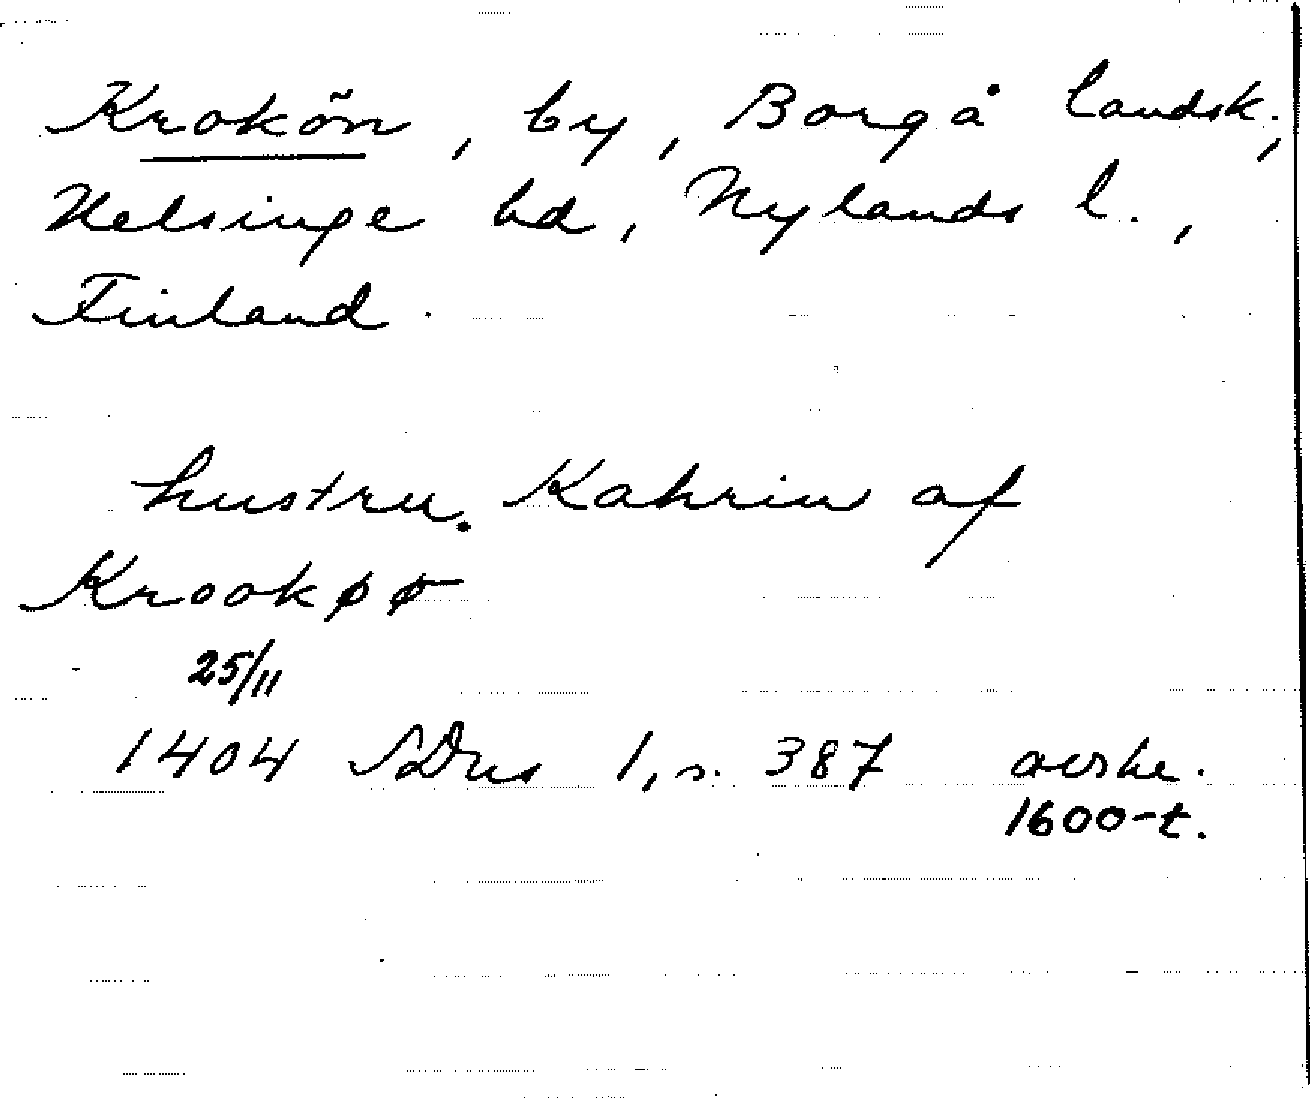 Krokön, by, Borgå landsk.,
Helsinge hd, Nylands l.,
Finland.
hustru. Kahrin af
Krookøø
25/11
1404 SDns 1, s. 387 avskr.
1600-t.